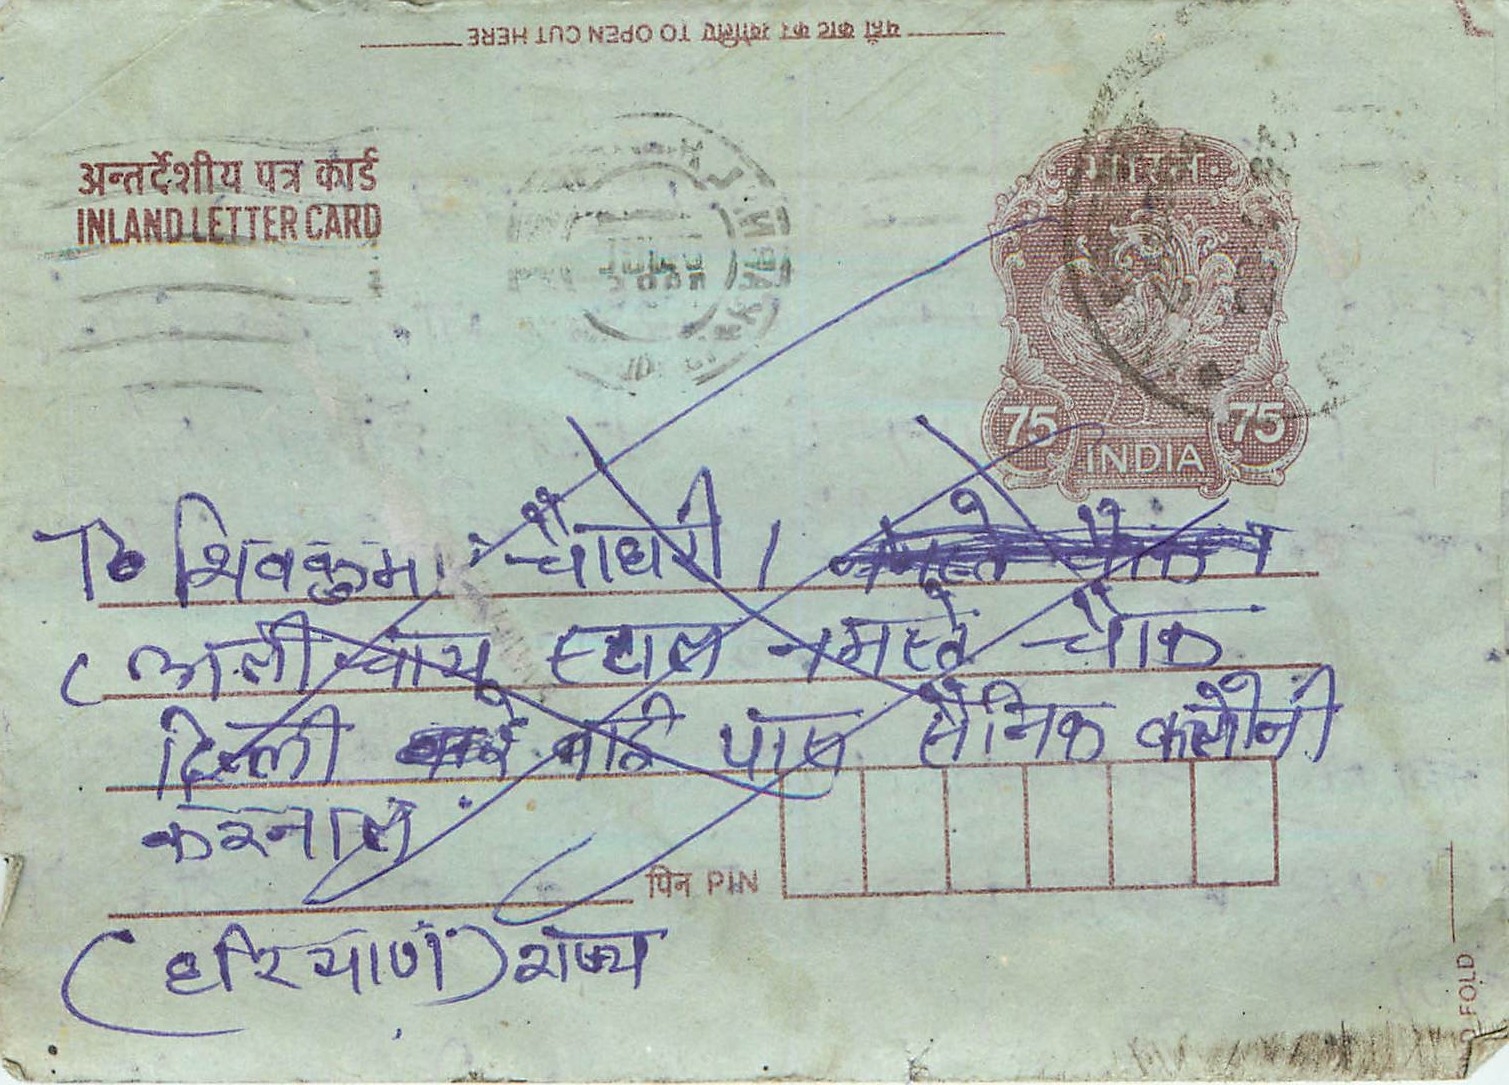 यहाँ काट कर खोलिए TO OPEN CUT HERE
अन्तर्देशीय पत्र कार्ड
INLAND LETTER CARD
भारत
75 75
INDIA
To शिवकुमार चौधरी।
स्टाल नमस्ते चौक
दिल्ली पास सैनिक कलोनी
करनाल
पिन PIN
(हरियाणा) राज्य
FOLD